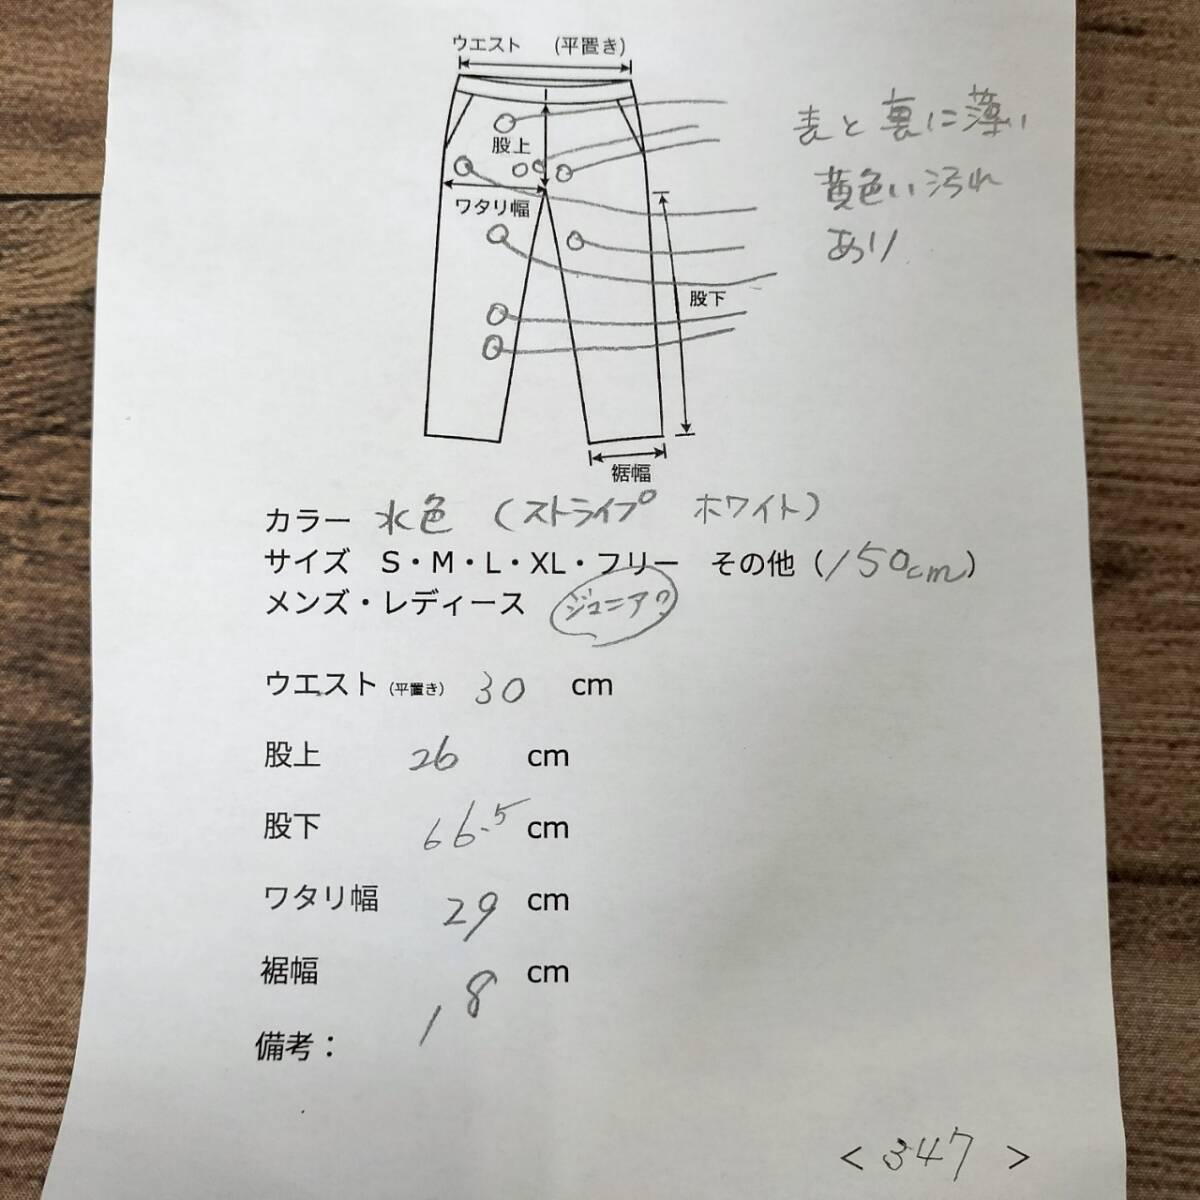 ウエスト (平置き)
股上
ワタリ幅
股下
裾幅
表と裏に薄い
黄色い汚れ
あり
カラー 水色 (ストライプ ホワイト)
サイズ S・M・L・XL・フリー その他 (150cm)
メンズ・レディース ジュニア?
ウエスト (平置き) 30 cm
股上 26 cm
股下 66.5 cm
ワタリ幅 29 cm
裾幅 18 cm
備考：
< 347 >